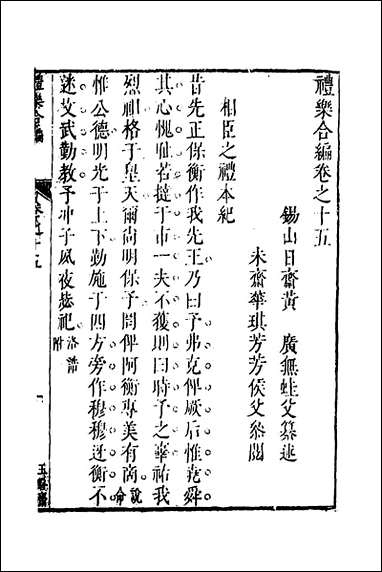 禮樂合編卷之十五
錫山日齋黃　廣無蛙父纂述
未齋華琪芳芳侯父叅閱
相臣之禮本紀
昔先正保衡作我先王乃曰予弗克俾厥后惟堯舜
其心愧恥若撻于市一夫不獲則曰時予之辜祐我
烈祖格于皇天爾尚明保予罔俾阿衡專美有商說命
惟公德明光于上下勤施于四方旁作穆穆迓衡不
迷文武勤教予冲子夙夜毖祀洛誥附
禮樂合編
卷之十五
一